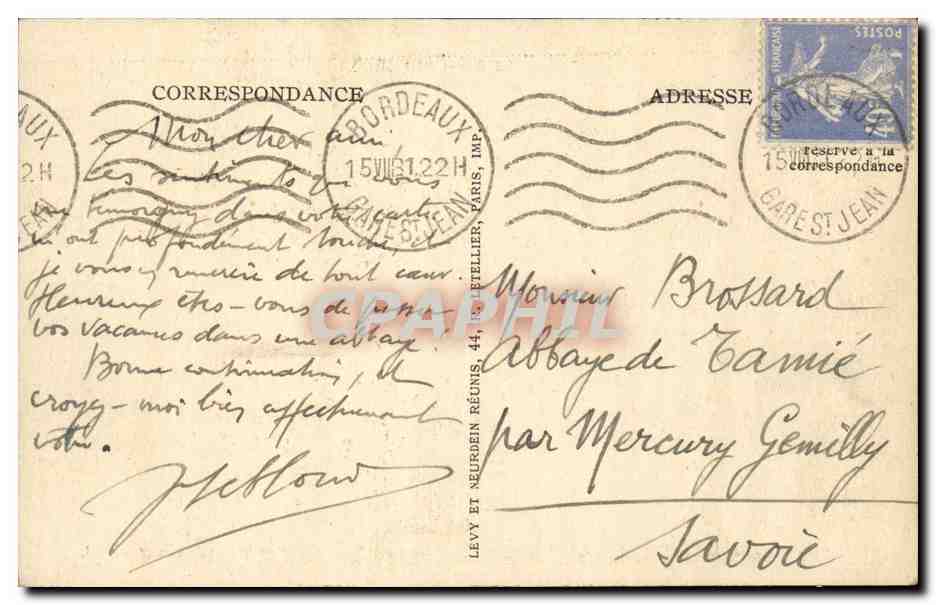 CORRESPONDANCE
ADRESSE
POSTES
FRANÇAISE
BORDEAUX
15 VII 31. 22 H
GARE ST JEAN
BORDEAUX
GARE ST JEAN
réservé à la
correspondance
Mon cher ami
Les sentiments que vous
me témoignez dans votre carte
m'ont profondément touché,
je vous en remercie de tout cœur.
Heureux êtes-vous de passer
vos vacances dans une abbaye.
Bonne continuation, et
croyez-moi bien affectueusement
vôtre.
LEVY ET NEURDEIN RÉUNIS, 44, R. LETELLIER, PARIS, IMP.
Monsieur Brossard
Abbaye de Tamié
par Mercury Gemilly
Savoie
CPAPHIL